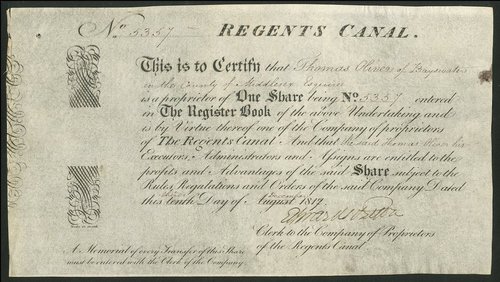 No. 5357 REGENTS CANAL.
This is to Certify that Thomas Oliver of Bayswater
in the County of Middlesex Esquire
is a proprietor of One Share being No. 5357 entered
in The Register Book of the above Undertaking and
is by Virtue thereof one of the Company of proprietors
of The Regents Canal. And that the said Thomas Oliver his
Executors, Administrators and Assigns are entitled to the
profits and Advantages of the said Share subject to the
Rules, Regulations and Orders of the said Company. Dated
this tenth Day of August 1812.
Clerk to the Company of Proprietors
of the Regents Canal.
A Memorial of every Transfer of this Share
must be entered with the Clerk of the Company.